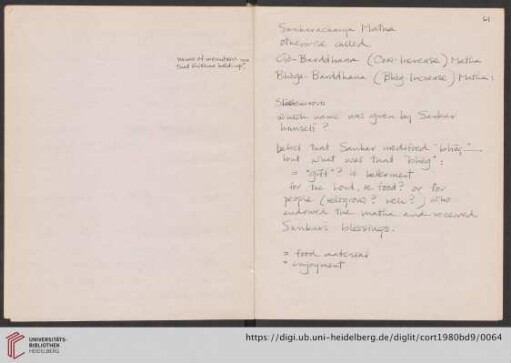 61
Sankaracharya Matha
otherwise called
Go-Barddhana (Cow: Increase) Matha
Bhoga-Barddhana (Bhog: Increase) Matha:
which name was given by Sankar
himself?
belief that Sankar introduced "bhog"
but what was that "bhog":
= "gift"? ie betterment
for the Lord, ie food? or for
people (religious? well?) who
endowed the matha and received
Sankar's blessings.
= food material
= enjoyment
UNIVERSITÄTS-
BIBLIOTHEK
HEIDELBERG
https://digi.ub.uni-heidelberg.de/diglit/cort1980bd9/0064